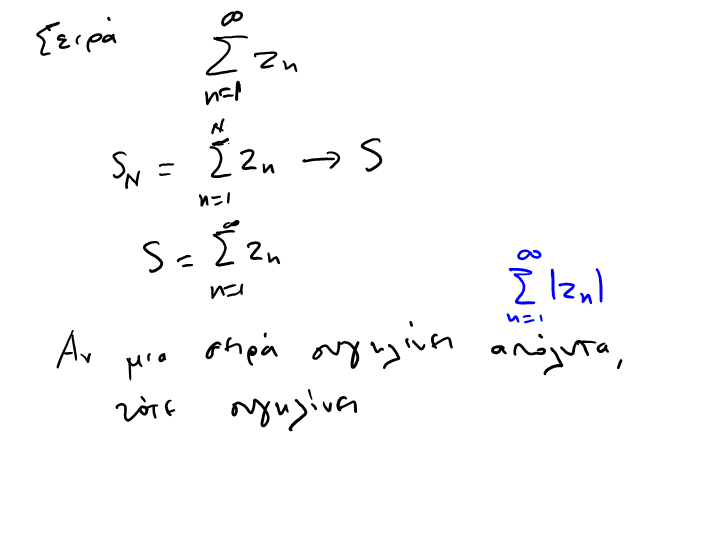 Σειρά $\sum_{n=1}^{\infty} z_n$
$S_N = \sum_{n=1}^{N} z_n \to S$
$S = \sum_{n=1}^{\infty} z_n$
$\sum_{n=1}^{\infty} |z_n|$
Αν μια σειρά συγκλίνει απόλυτα,
τότε συγκλίνει